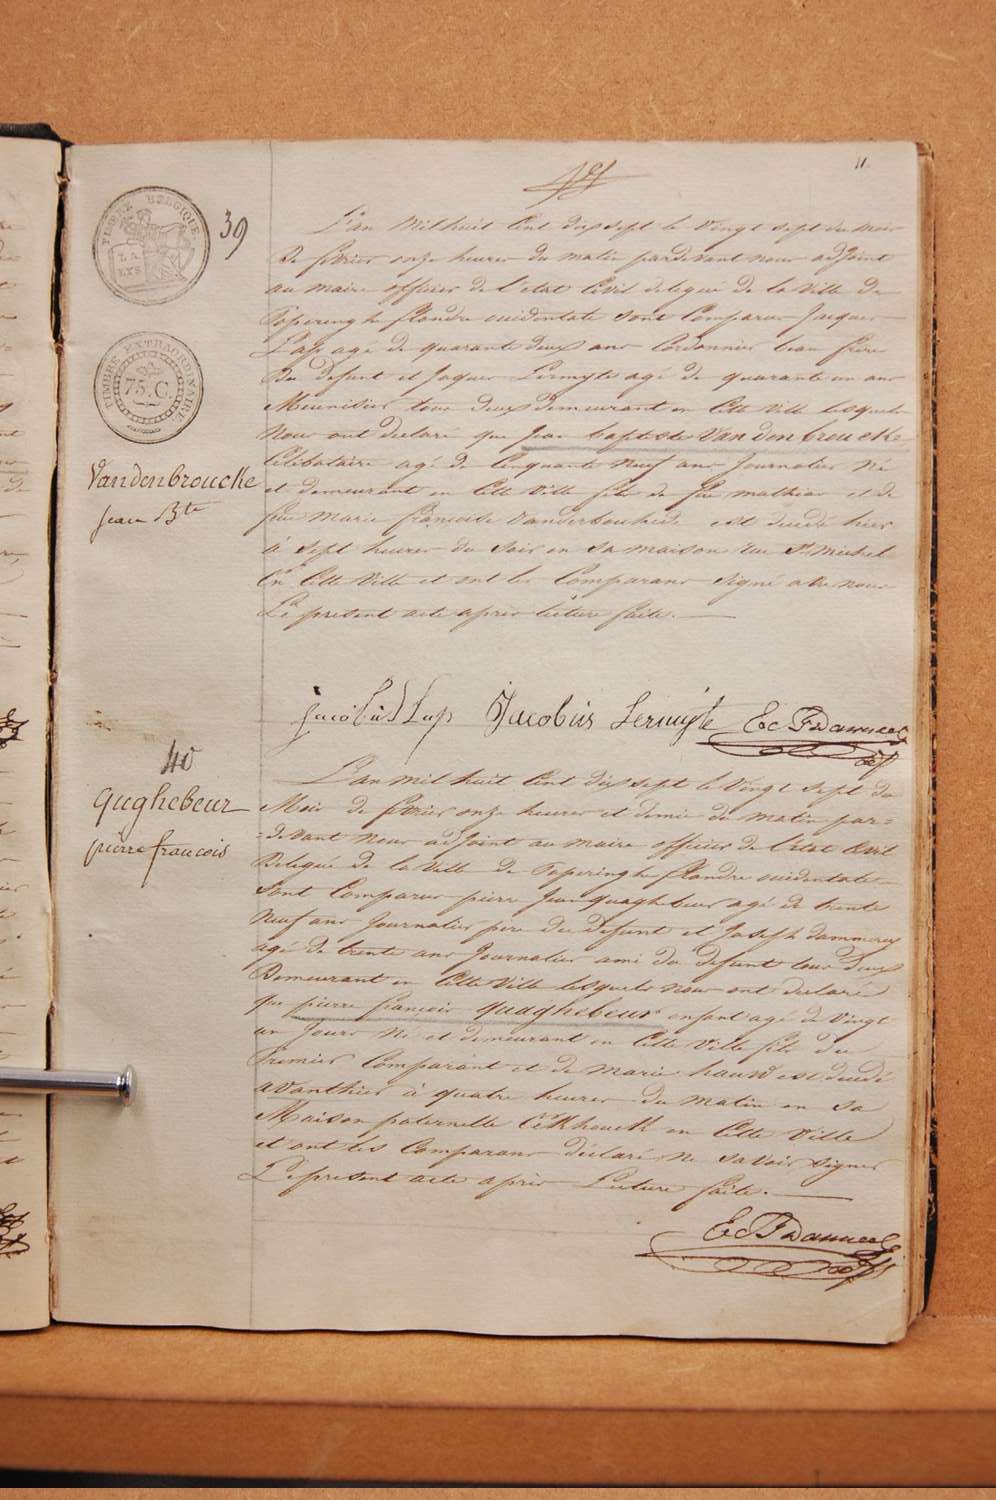 11
TIMBRE BELGIQUE
LA
LYS
TIMBRE EXTRAORDINAIRE
75. C.
39
Vandenbroucke
jean Bte
L'an Mil huit Cent dix sept le Vingt sept du mois
de fevrier onze heures du matin pardevant nous adjoint
au maire officier de l'etat Civil delegué de la Ville de
Poperinghe flandre occidentale sont Comparus Jacques
Lap agé de quarante deux ans Cordonnier beau frère
du defunt et Jaques Lermyte agé de quarante un ans
Meunisier tous deux demeurant en Cette Ville lesquels
Nous ont declaré que Jean baptiste Vandenbroucke
Célibataire agé de Cinquante neuf ans Journalier Né
et demeurant en Cette Ville fils de feu mathieu et de
feue Marie francoise Vanderbouhede est decedé hier
à sept heures du soir en sa maison rue St Michel
En Cette Ville et ont les Comparans signé avec nous
Le present acte apres lecture faite.
Jacobus Lap Jacobus Lermyte
40
Qughebeur
pierre francois
L'an mil huit Cent dix sept le Vingt sept du
Mois de fevrier onze heures et demie du matin par=
=devant nous adjoint au maire officier de l'etat Civil
Delegué de la Ville de Poperinghe flandre occidentale
Sont Comparus pierre Jean quaghebeur agé de trente
Neuf ans Journalier pere du defunt et Joseph dammerey
agé de trente ans Journalier ami du defunt tous deux
Demeurant en Cette Ville lesquels nous ont declaré
que pierre francois quaghebeur enfant agé de Vingt
un Jours né et demeurant en Cette Ville fils du
Premier Comparant et de marie hauw est decedé
avanthier à quatre heures du matin en sa
Maison paternelle en Cette Ville
et ont les Comparans déclaré ne savoir signer
Le present acte après Lecture faite.